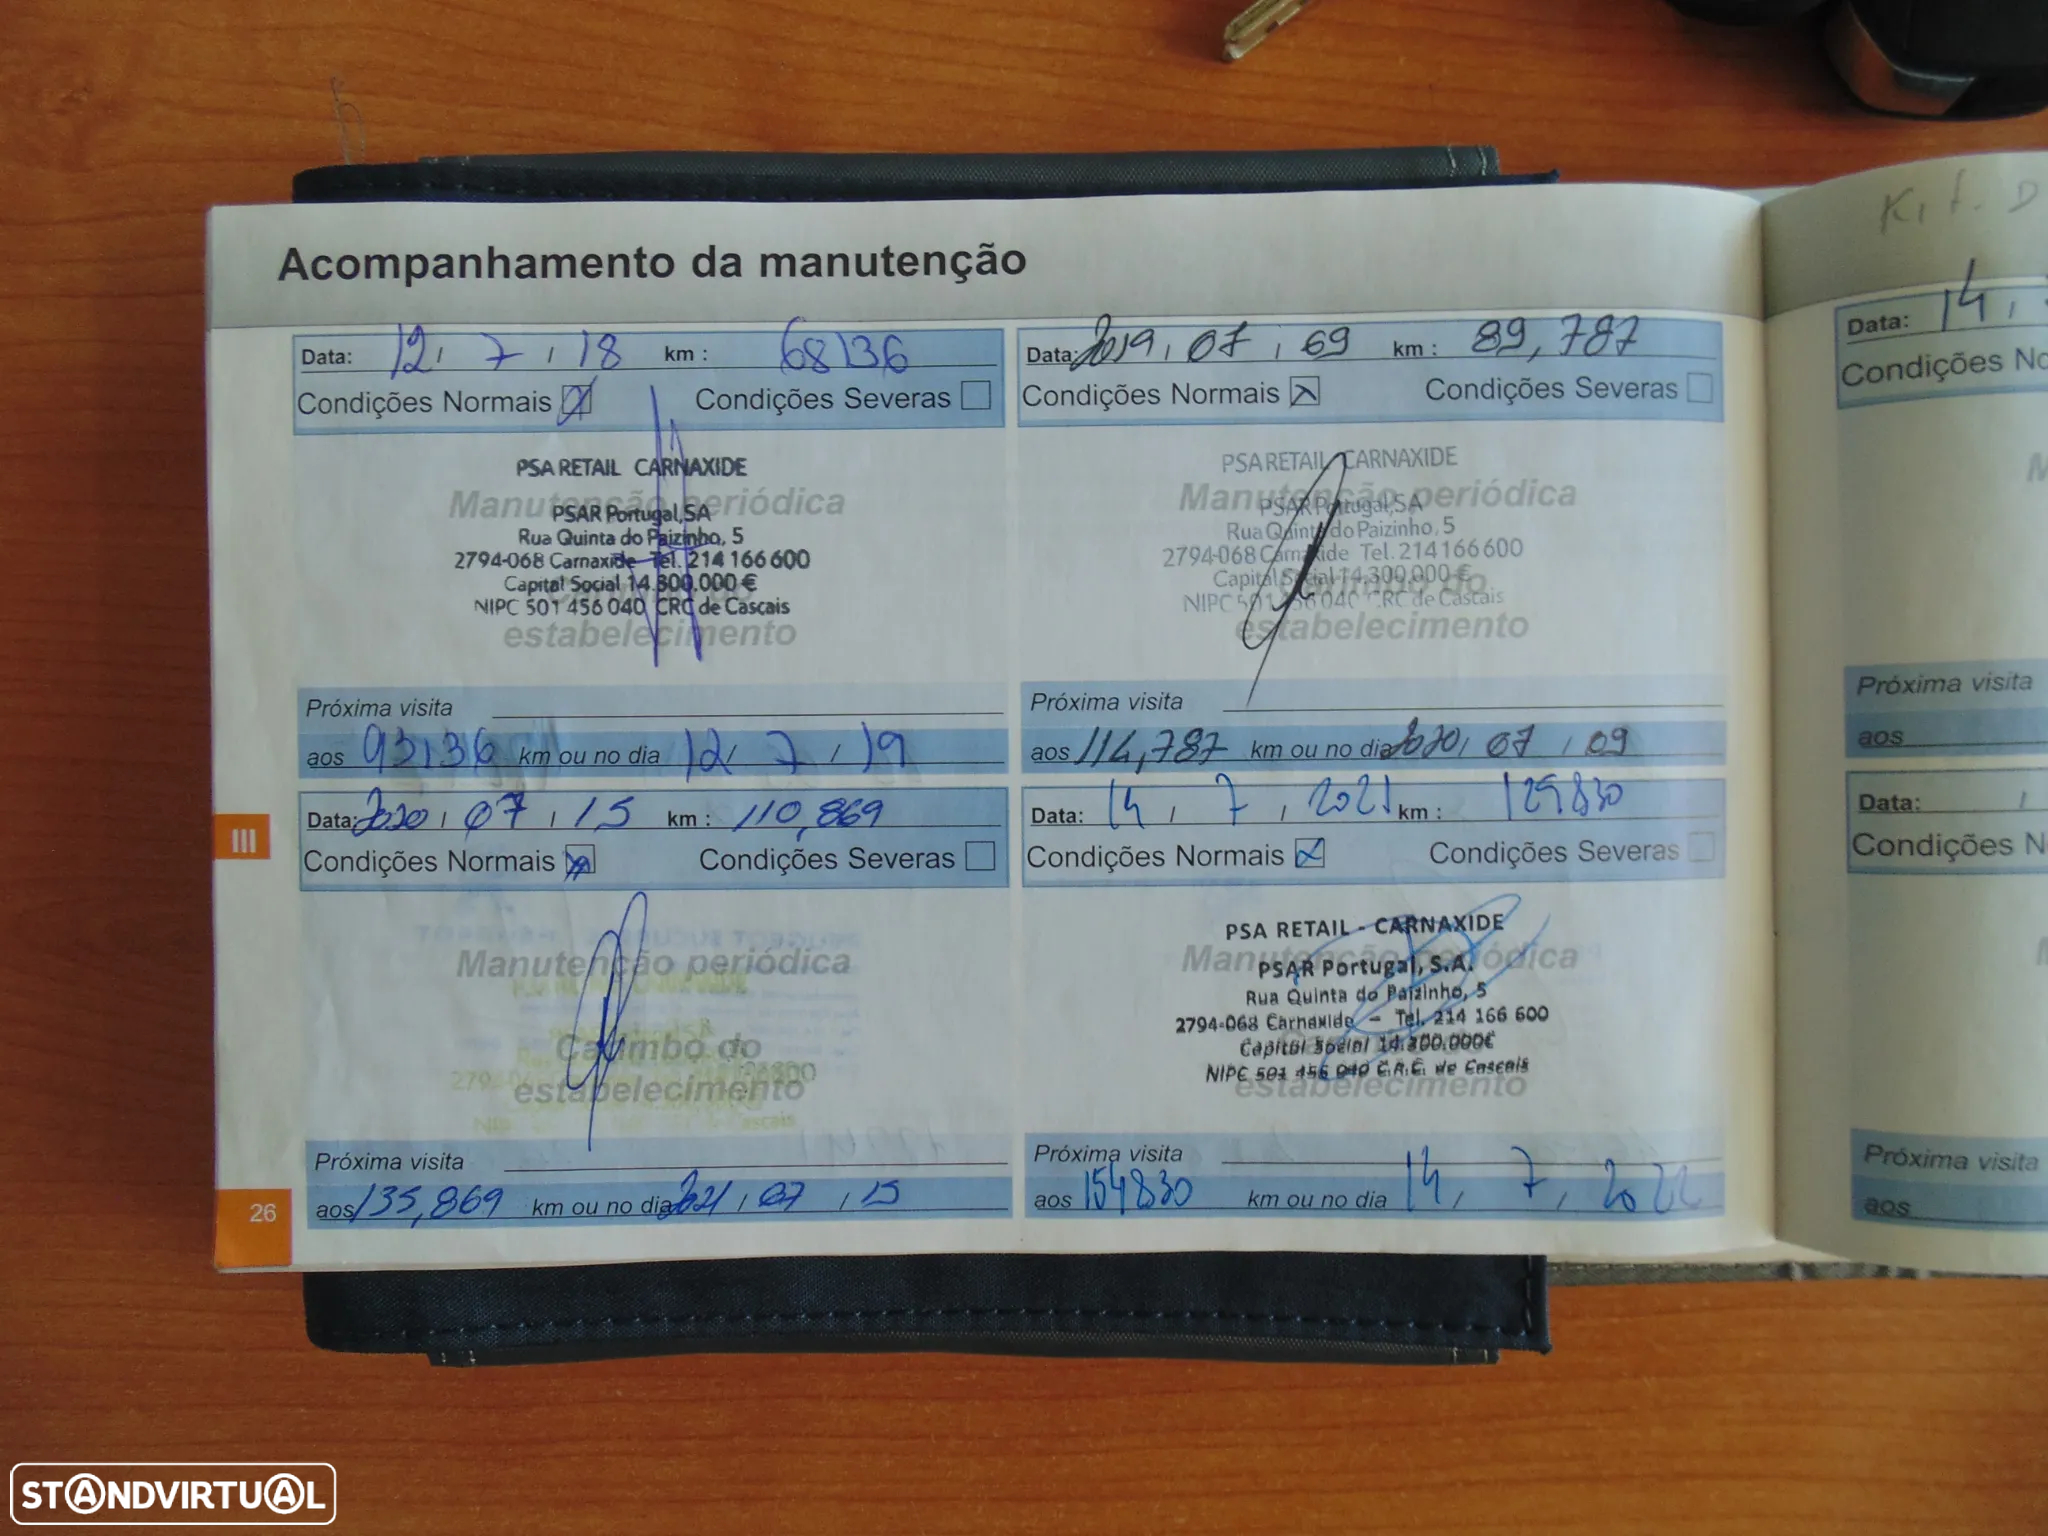 Acompanhamento da manutenção
Data: 12 / 7 / 18 km : 68136
Condições Normais Condições Severas
PSA RETAIL CARNAXIDE
Manutenção periódica
PSAR Portugal, SA
Rua Quinta do Paizinho, 5
2794-068 Carnaxide Tel. 214 166 600
Capital Social 14.300.000 €
NIPC 501 456 040 CRC de Cascais
estabelecimento
Próxima visita
aos 93136 km ou no dia 12 / 7 / 19
Data: 2019 / 07 / 09 km : 89,787
Condições Normais Condições Severas
PSA RETAIL CARNAXIDE
Manutenção periódica
PSAR Portugal, SA
Rua Quinta do Paizinho, 5
2794-068 Carnaxide Tel. 214 166 600
Capital Social 14.300.000 €
NIPC 501 456 040 CRC de Cascais
estabelecimento
Próxima visita
aos 114,787 km ou no dia 2020 / 07 / 09
Data: 2020 / 07 / 15 km : 110,869
Condições Normais Condições Severas
Manutenção periódica
Carimbo do
estabelecimento
Próxima visita
aos 135,869 km ou no dia 2021 / 07 / 15
Data: 14 / 7 / 2021 km : 129830
Condições Normais Condições Severas
PSA RETAIL - CARNAXIDE
Manutenção periódica
PSAR Portugal, S.A.
Rua Quinta do Paizinho, 5
2794-068 Carnaxide - Tel. 214 166 600
Capital Social 14.300.000€
NIPC 501 456 040 C.R.C. de Cascais
estabelecimento
Próxima visita
aos 154830 km ou no dia 14 / 7 / 2022
III
26
Kit. D
Data: 14 /
Condições No
Próxima visita
aos
Data: /
Condições N
Próxima visita
aos
STANDVIRTUAL